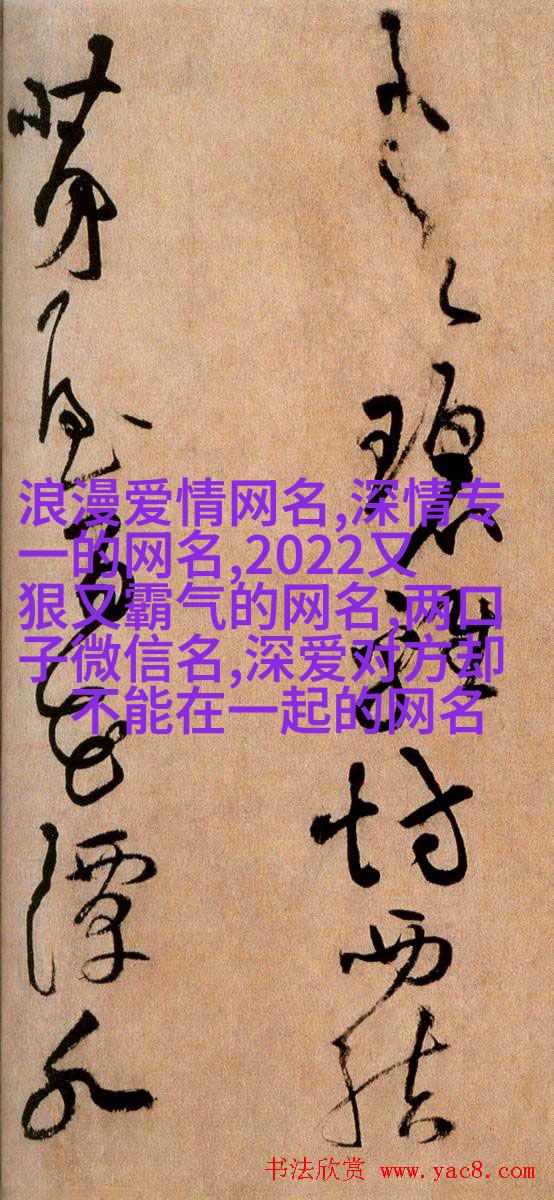 碧雞坊西結
茅屋百花潭水
浪漫爱情网名,深情专
一的网名,2022又
狠又霸气的网名,两口
子微信名,深爱对方却
不能在一起的网名
书法欣赏 www.yac8.com